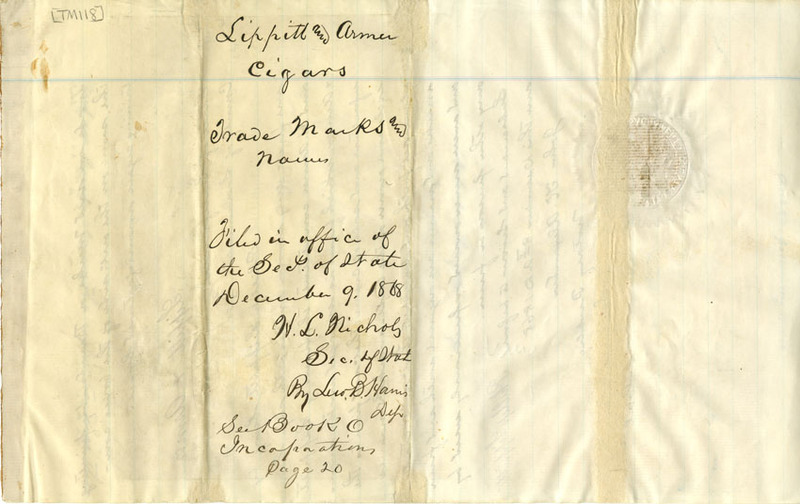 [TM118]
Lippitt and Armer
Cigars
Trade Marks and
Names
Filed in office of
the Sec. of State
December 9. 1868
H. L. Nichols
Sec. of Stat
By B. Harris
Dep
See Book O
Incoporations
Page 20